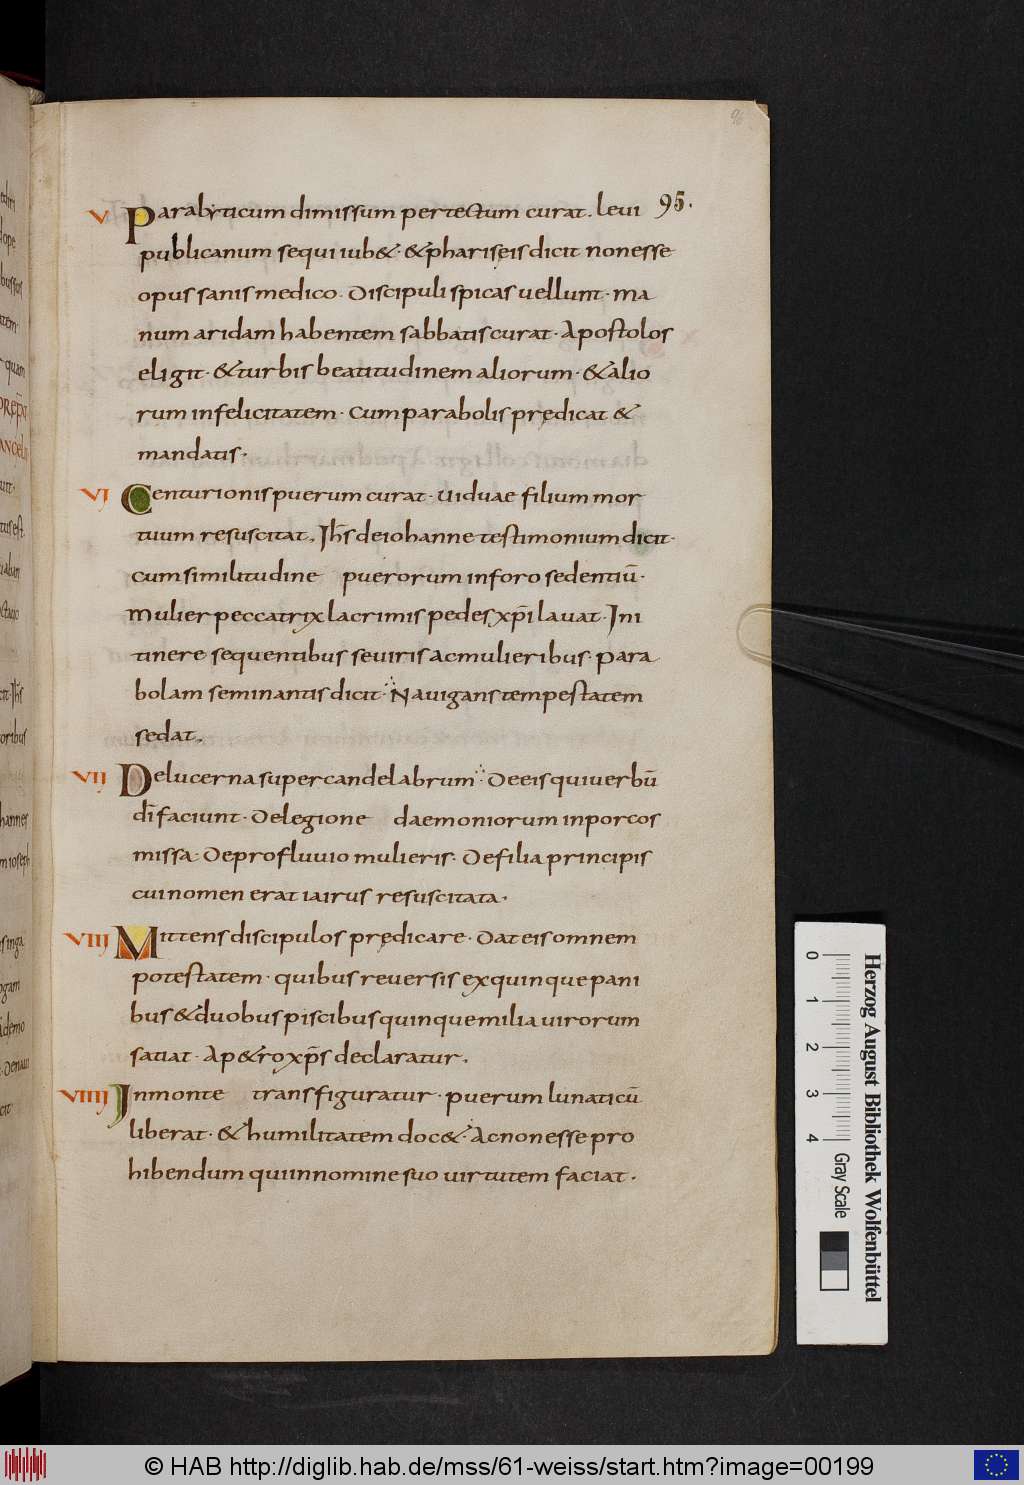 96
95.
V Paralyticum dimissum per tectum curat. leui
publicanum sequi iub&. & phariseis dicit non esse
opus sanis medico. Discipuli spicas uellunt. ma
num aridam habentem sabbatis curat. Apostolos
eligit. & turbis beatitudinem aliorum. & alio
rum infelicitatem. Cum parabolis prędicat &
mandatis.
VI Centurionis puerum curat. Uiduae filium mor
tuum resuscitat. Ih̅s de iohanne testimonium dicit.
cum similitudine puerorum in foro sedentiū.
Mulier peccatrix lacrimis pedes xp̅i lauat. In i
tinere sequentibus se uiris ac mulieribus. para
bolam seminantis dicit. Nauigans tempestatem
sedat.
VII De lucerna super candelabrum. De eis qui uerbū
dī faciunt. De legione daemoniorum in porcos
missa. De profluuio mulieris. De filia principis
cui nomen erat iairus resuscitata.
VIII Mittens discipulos prędicare. Dat eis omnem
potestatem. quibus reuersis ex quinque pani
bus & duobus piscibus quinque milia uirorum
satiat. A p&ro xp̅s declaratur.
VIIII In monte transfiguratur. puerum lunaticū
liberat. & humilitatem doc&. Ac non esse pro
hibendum qui in nomine suo uirtutem faciat.
0 1 2 3 4 Gray Scale
Herzog August Bibliothek Wolfenbüttel
© HAB http://diglib.hab.de/mss/61-weiss/start.htm?image=00199